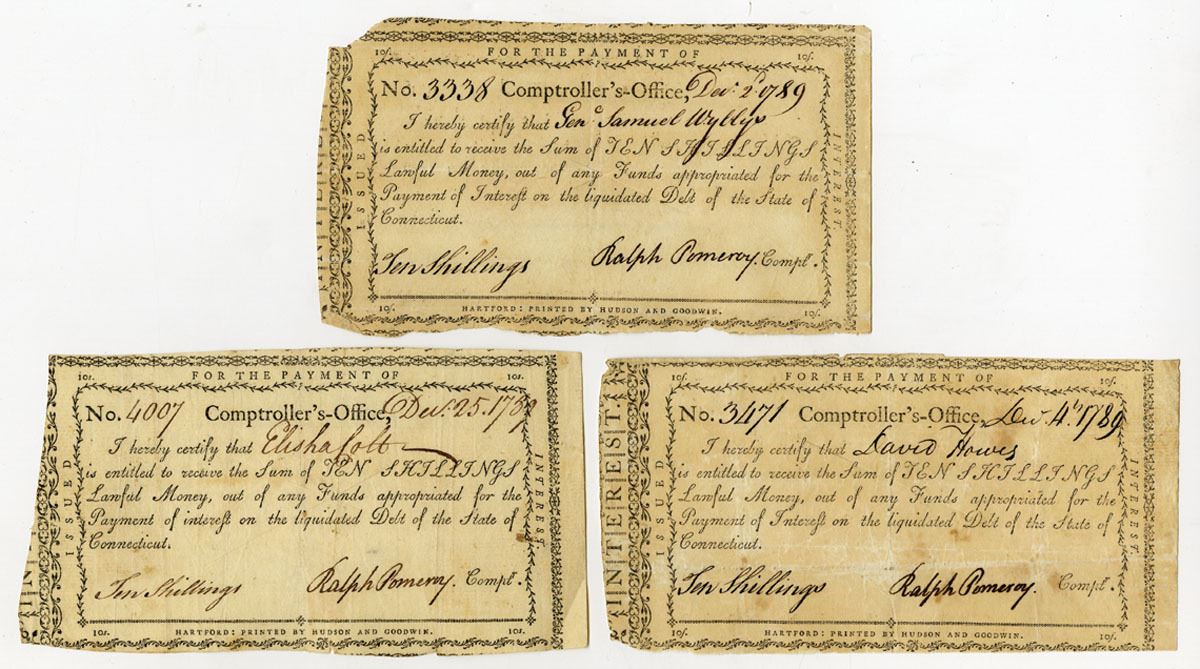 FOR THE PAYMENT OF
10ſ. 10ſ.
No. 3338 Comptroller's-Office, Decr. 2d 1789
I hereby certify that Genl. Samuel Wyllys
is entitled to receive the Sum of TEN SHILLINGS
Lawful Money, out of any Funds appropriated for the
Payment of Intereſt on the liquidated Debt of the State of
Connecticut.
Ten Shillings Ralph Pomeroy. Comptr.
10ſ. 10ſ.
HARTFORD: PRINTED BY HUDSON AND GOODWIN.
ISSUED
INTEREST.
FOR THE PAYMENT OF
10s. 10s.
No. 4007 Comptroller's-Office, Decr. 25. 1789
I hereby certify that Elisha Colt
is entitled to receive the Sum of TEN SHILLINGS
Lawful Money, out of any Funds appropriated for the
Payment of intereſt on the liquidated Debt of the State of
Connecticut.
Ten Shillings Ralph Pomeroy. Comptr.
10s. 10s.
HARTFORD: PRINTED BY HUDSON AND GOODWIN.
ISSUED
INTEREST.
FOR THE PAYMENT OF
10ſ. 10ſ.
No. 3471 Comptroller's-Office, Decr 4th. 1789
I hereby certify that David Howes
is entitled to receive the Sum of TEN SHILLINGS
Lawful Money, out of any Funds appropriated for the
Payment of Intereſt on the liquidated Debt of the State of
Connecticut.
Ten Shillings Ralph Pomeroy. Comptr.
10ſ. 10ſ.
HARTFORD: PRINTED BY HUDSON AND GOODWIN.
INTEREST.
ISSUED
INTEREST.